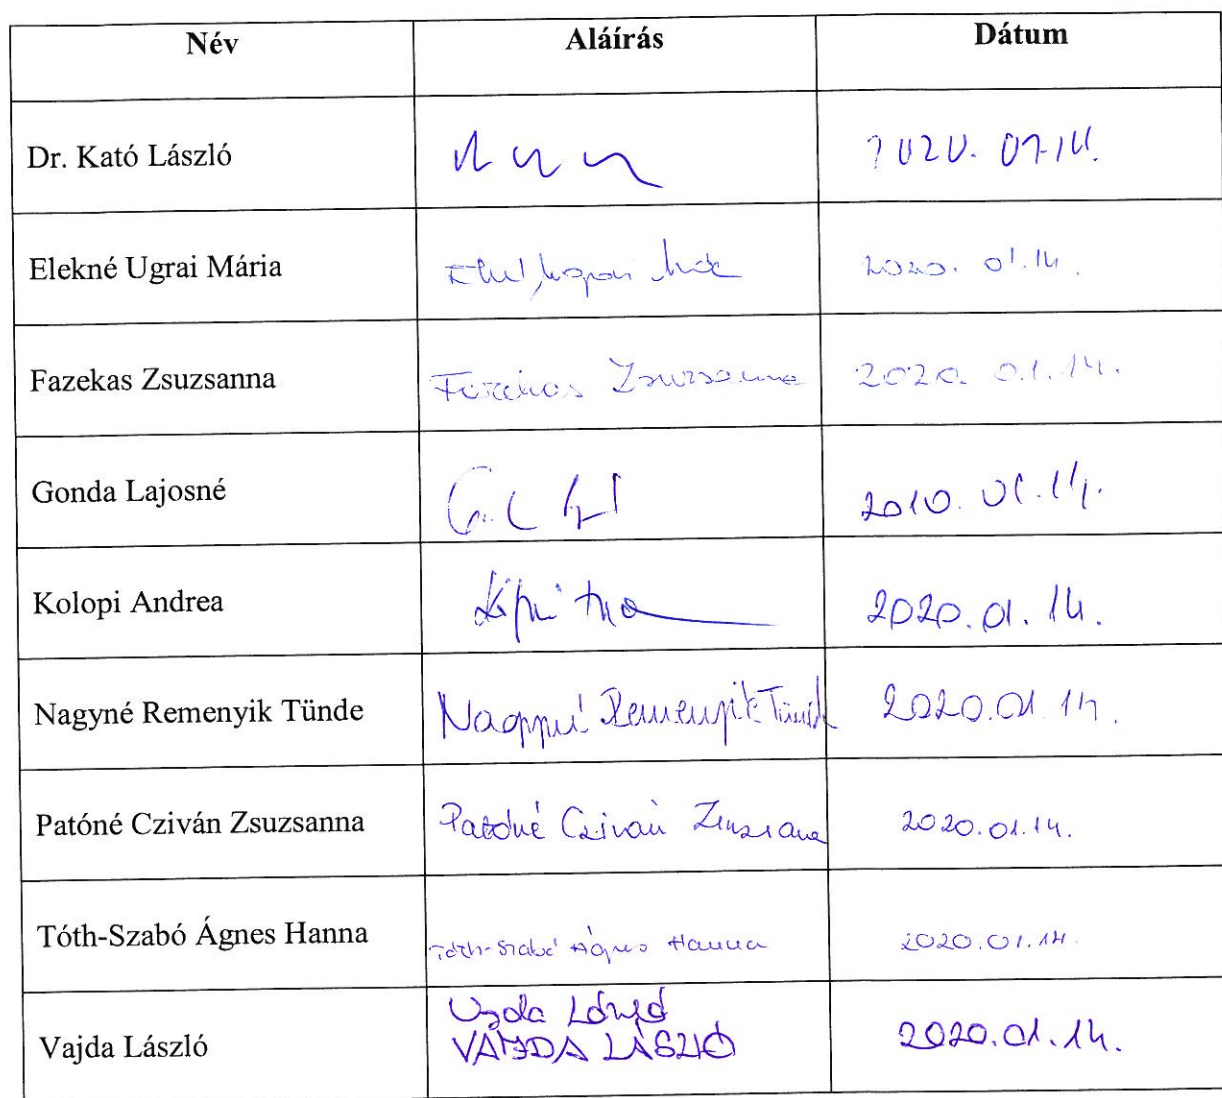 Név Aláírás Dátum
Dr. Kató László 2020. 01.14.
Elekné Ugrai Mária 2020. 01.14.
Fazekas Zsuzsanna Fazekas Zsuzsanna 2020. 01.14.
Gonda Lajosné 2010. 01.14.
Kolopi Andrea 2020.01.14.
Nagyné Remenyik Tünde Nagyné Remenyik Tünde 2020.01.14.
Patóné Cziván Zsuzsanna Patóné Cziván Zsuzsanna 2020.01.14.
Tóth-Szabó Ágnes Hanna Tóth-Szabó Ágnes Hanna 2020.01.14.
Vajda László
Vajda László VAJDA LÁSZLÓ 2020.01.14.